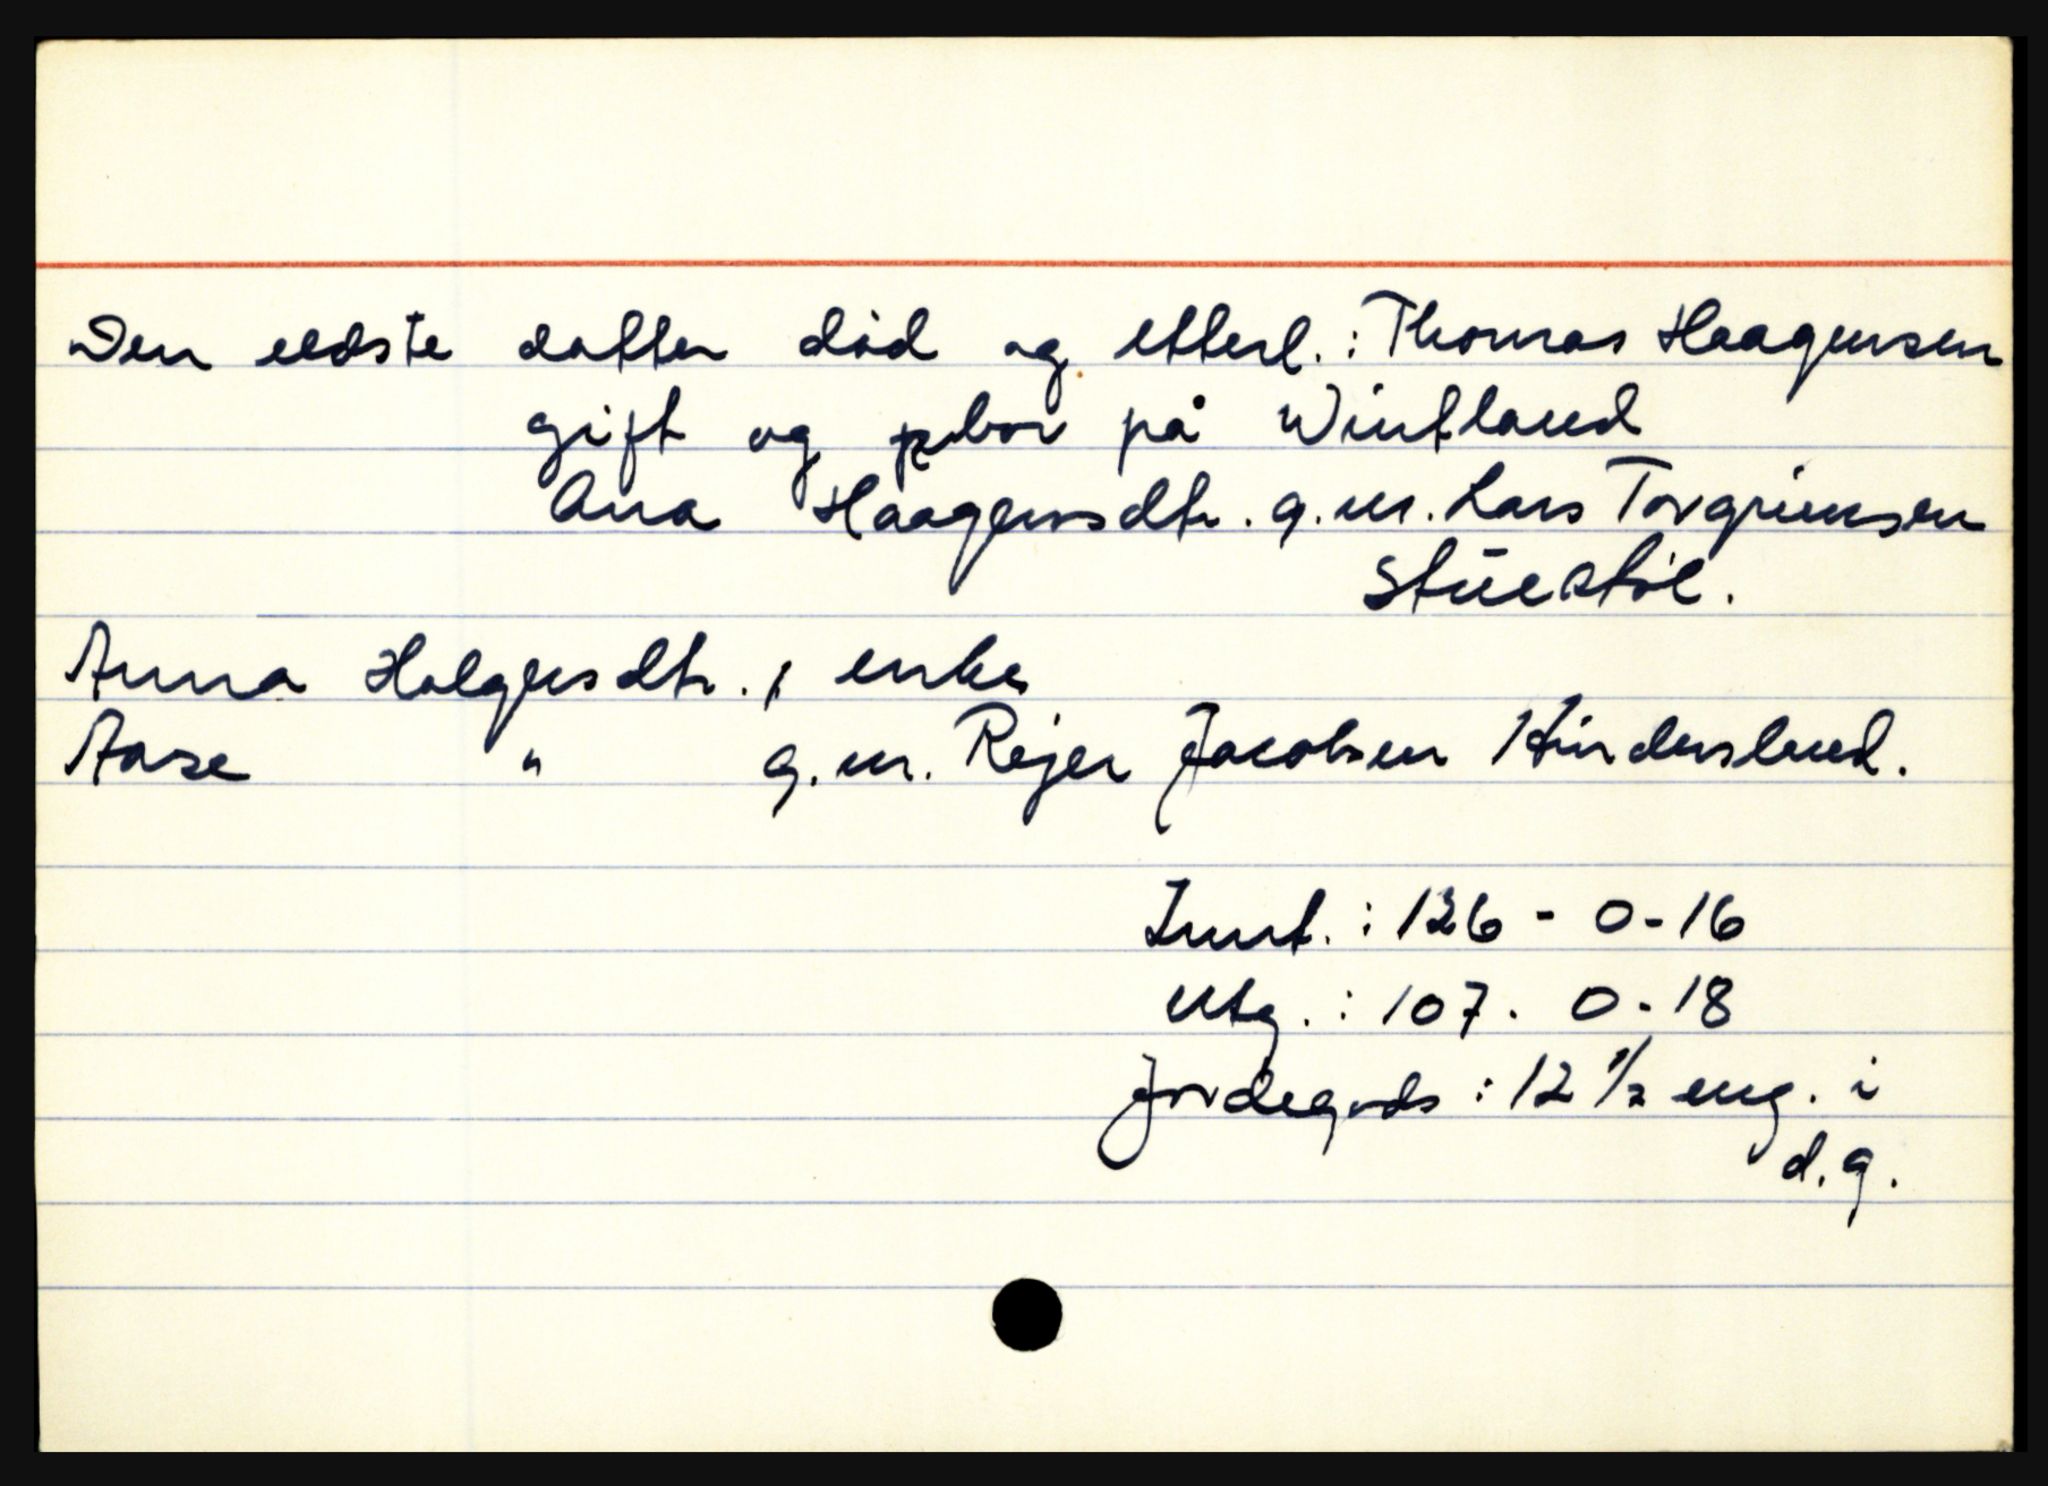 Den eldste datter död og etterl.: Thomas Haagensen
gift og bor på Wintland
Ana Haagensdtr. g.m. Lars Torgriemsen
Stüestöl.
Anna Holgersdtr., enke
Aase " g.m. Rejer Jacobsen Hindersland.
Innt.: 126 - 0 - 16
Utg.: 107 - 0 - 18
Jordegods: 12 1/2 eng. i
d.g.